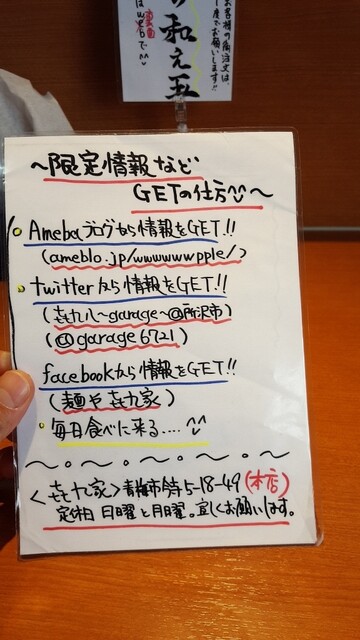 お客様の御注文は、
一度でお願いします!!
和え玉
〜限定情報など
GETの仕方〜
Amebaブログから情報をGET!!
(ameblo.jp/wwwwwwpple/)
twitterから情報をGET!!
(㐂九八〜garage〜@所沢市)
(@garage6721)
facebookから情報をGET!!
(麺や 㐂九家)
・毎日食べに来る....
〜。〜。〜。〜。〜
<㐂九家>青梅市今井5-18-49(本店)
定休日 日曜と月曜。宜しくお願いします。